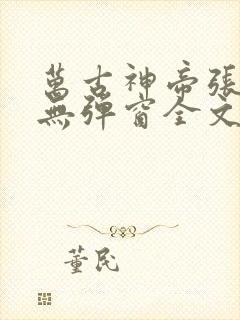 萬古神帝張
無彈窗全文
董民